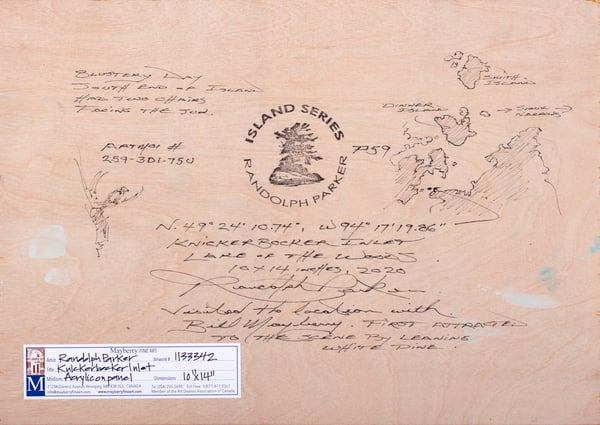 BLUSTERY DAY
SOUTH END OF ISLAND
HAD TWO CHAIRS
FACING THE SUN.
ARTWORK #
259-3D1-75U
ISLAND SERIES
RANDOLPH PARKER
P59
DINNER
ISLAND
SMITH
ISLAND
→ SIOUX →
NARROWS
N. 49° 24' 10.74", W 94° 17' 19.86"
KNICKERBOCKER INLET
LAKE OF THE WOODS.
10X14 inches, 2020
Randolph Parker
Visited the location with
Bill Mayberry. FIRST ATTRACTED
TO THE SCENE BY LEANING
WHITE PINE.
Mayberry FINE ART
Artist: Randolph Parker Artwork # 1133342
Title: Knickerbocker Inlet
Medium: Acrylic on panel Dimensions: 10"x14"
212 McDermot Avenue, Winnipeg, MB R3B 0S3, CANADA Tel (204) 255-5690 Toll Free: 1(877) 871-9261
info@mayberryfineart.com www.mayberryfineart.com Member of the Art Dealers Association of Canada
M